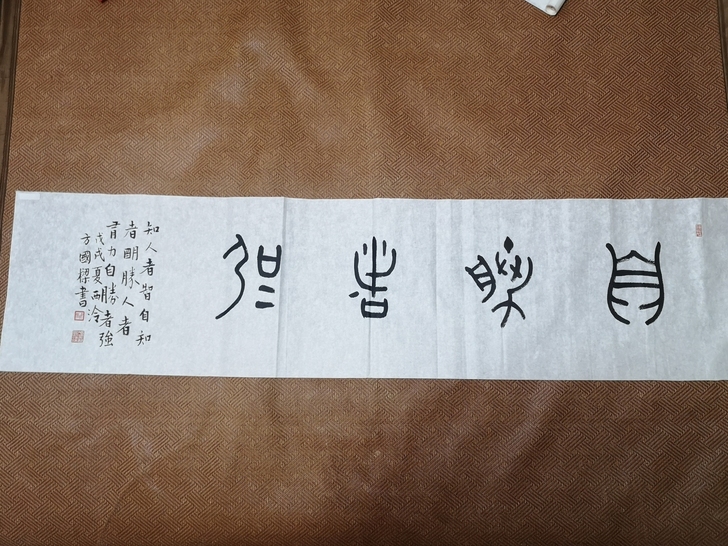 自勝者強
知人者智自知
者明勝人者
有力自勝者強
戊戌夏西泠
方國樑書